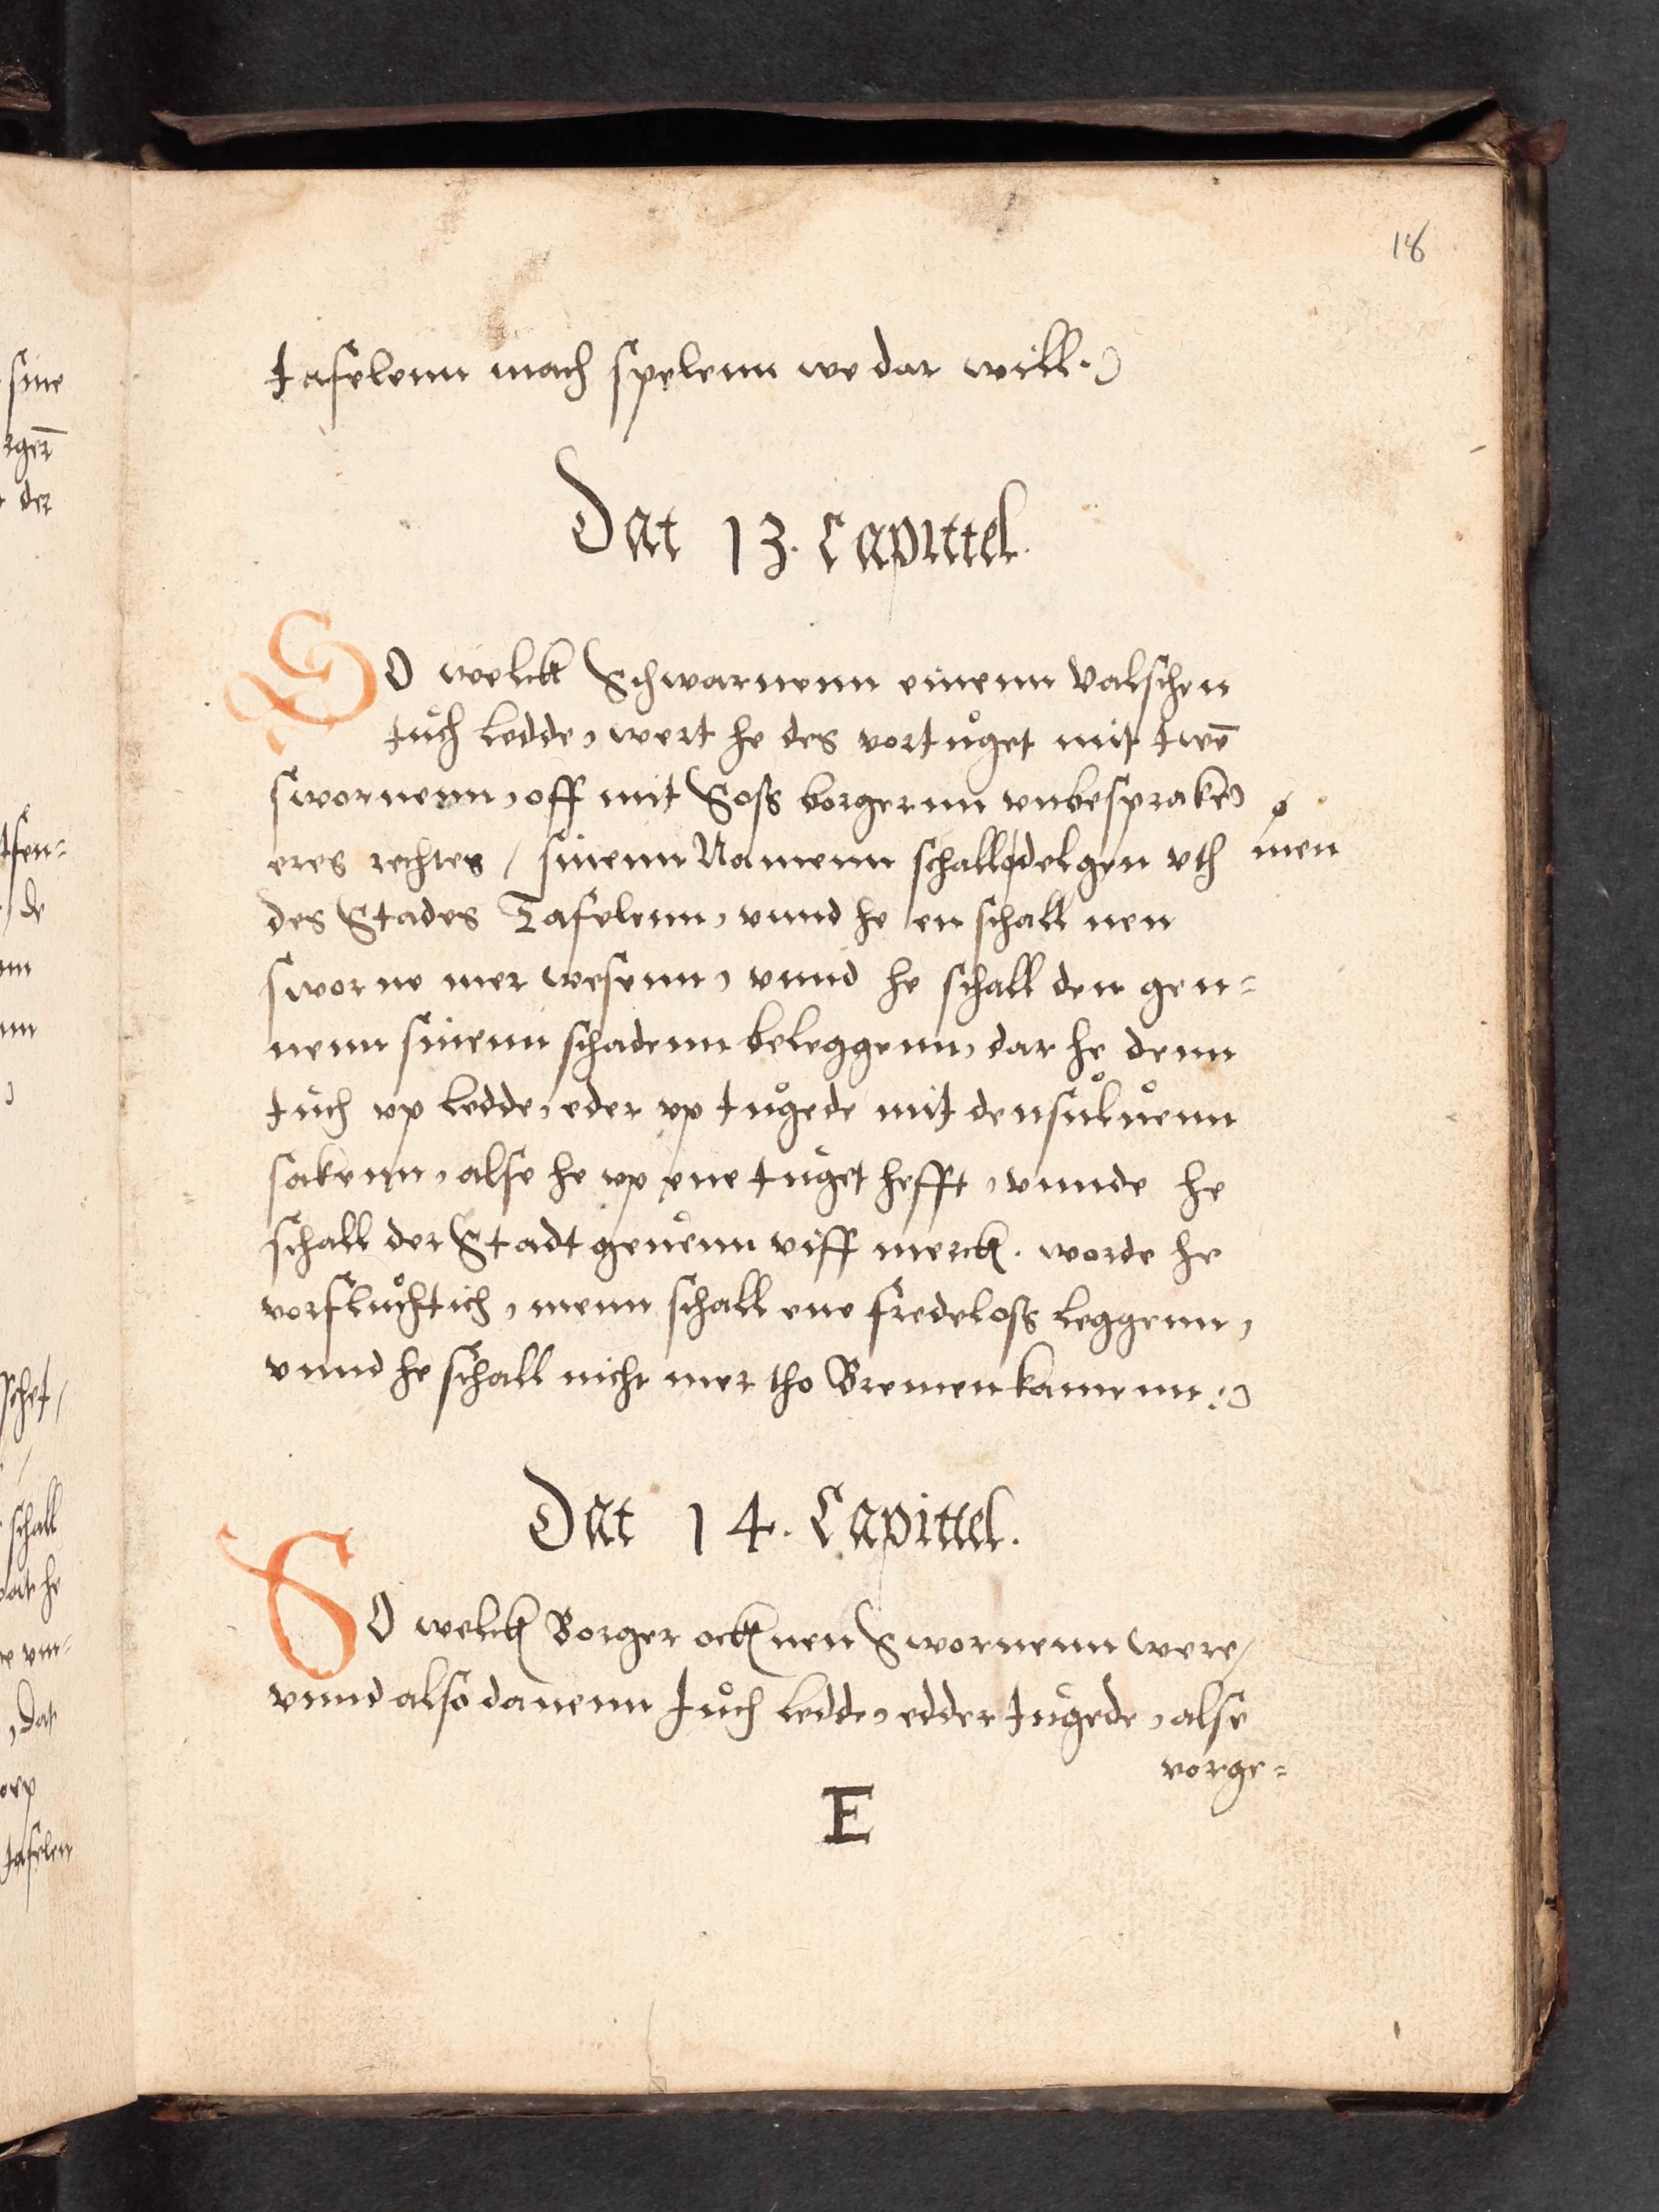 18
tafelenn mach spelenn we dar will.
Dat 13. Capittel.
SO welck Schwarnenn einenn valschen
tůch ledde, wert he des vortůget mit twē
swornenn, off mit Soß borgernn vnbesprake
eres rechtes / sinenn Namenn schall delgen vth men
des Stades Tafelenn, vnnd he en schall nen
sworne mer wesenn, vnnd he schall den gen=
nenn sinenn schadenn beleggenn, dar he denn
tůch vp ledde, eder vp tůgede mit densůluenn
sakenn, alse he vp ene tuget hefft, vnnde he
schall der Stadt geuenn viff merck. worde he
vorflůchtich, menn schall ene fredeloß leggenn,
vnnd he schall nicht mer tho Bremen kamenn.
Dat 14. Capittel.
SO welck Borger ock nen Swornenn were /
vnnd also danenn tůch ledde, edder tůgede, alse
vorge=
E
sine
rgerē
der
tsen=
de
schet /
schall
dat he
vn=
Dat
tafelen